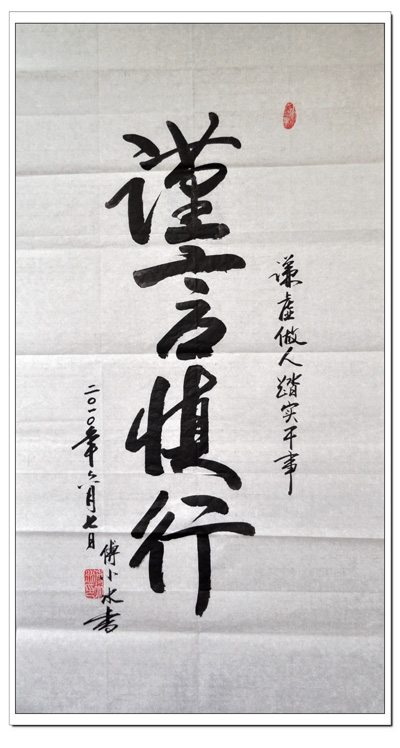 谦虚做人踏实干事
謹言慎行
二〇一〇年六月七日
傅小水書